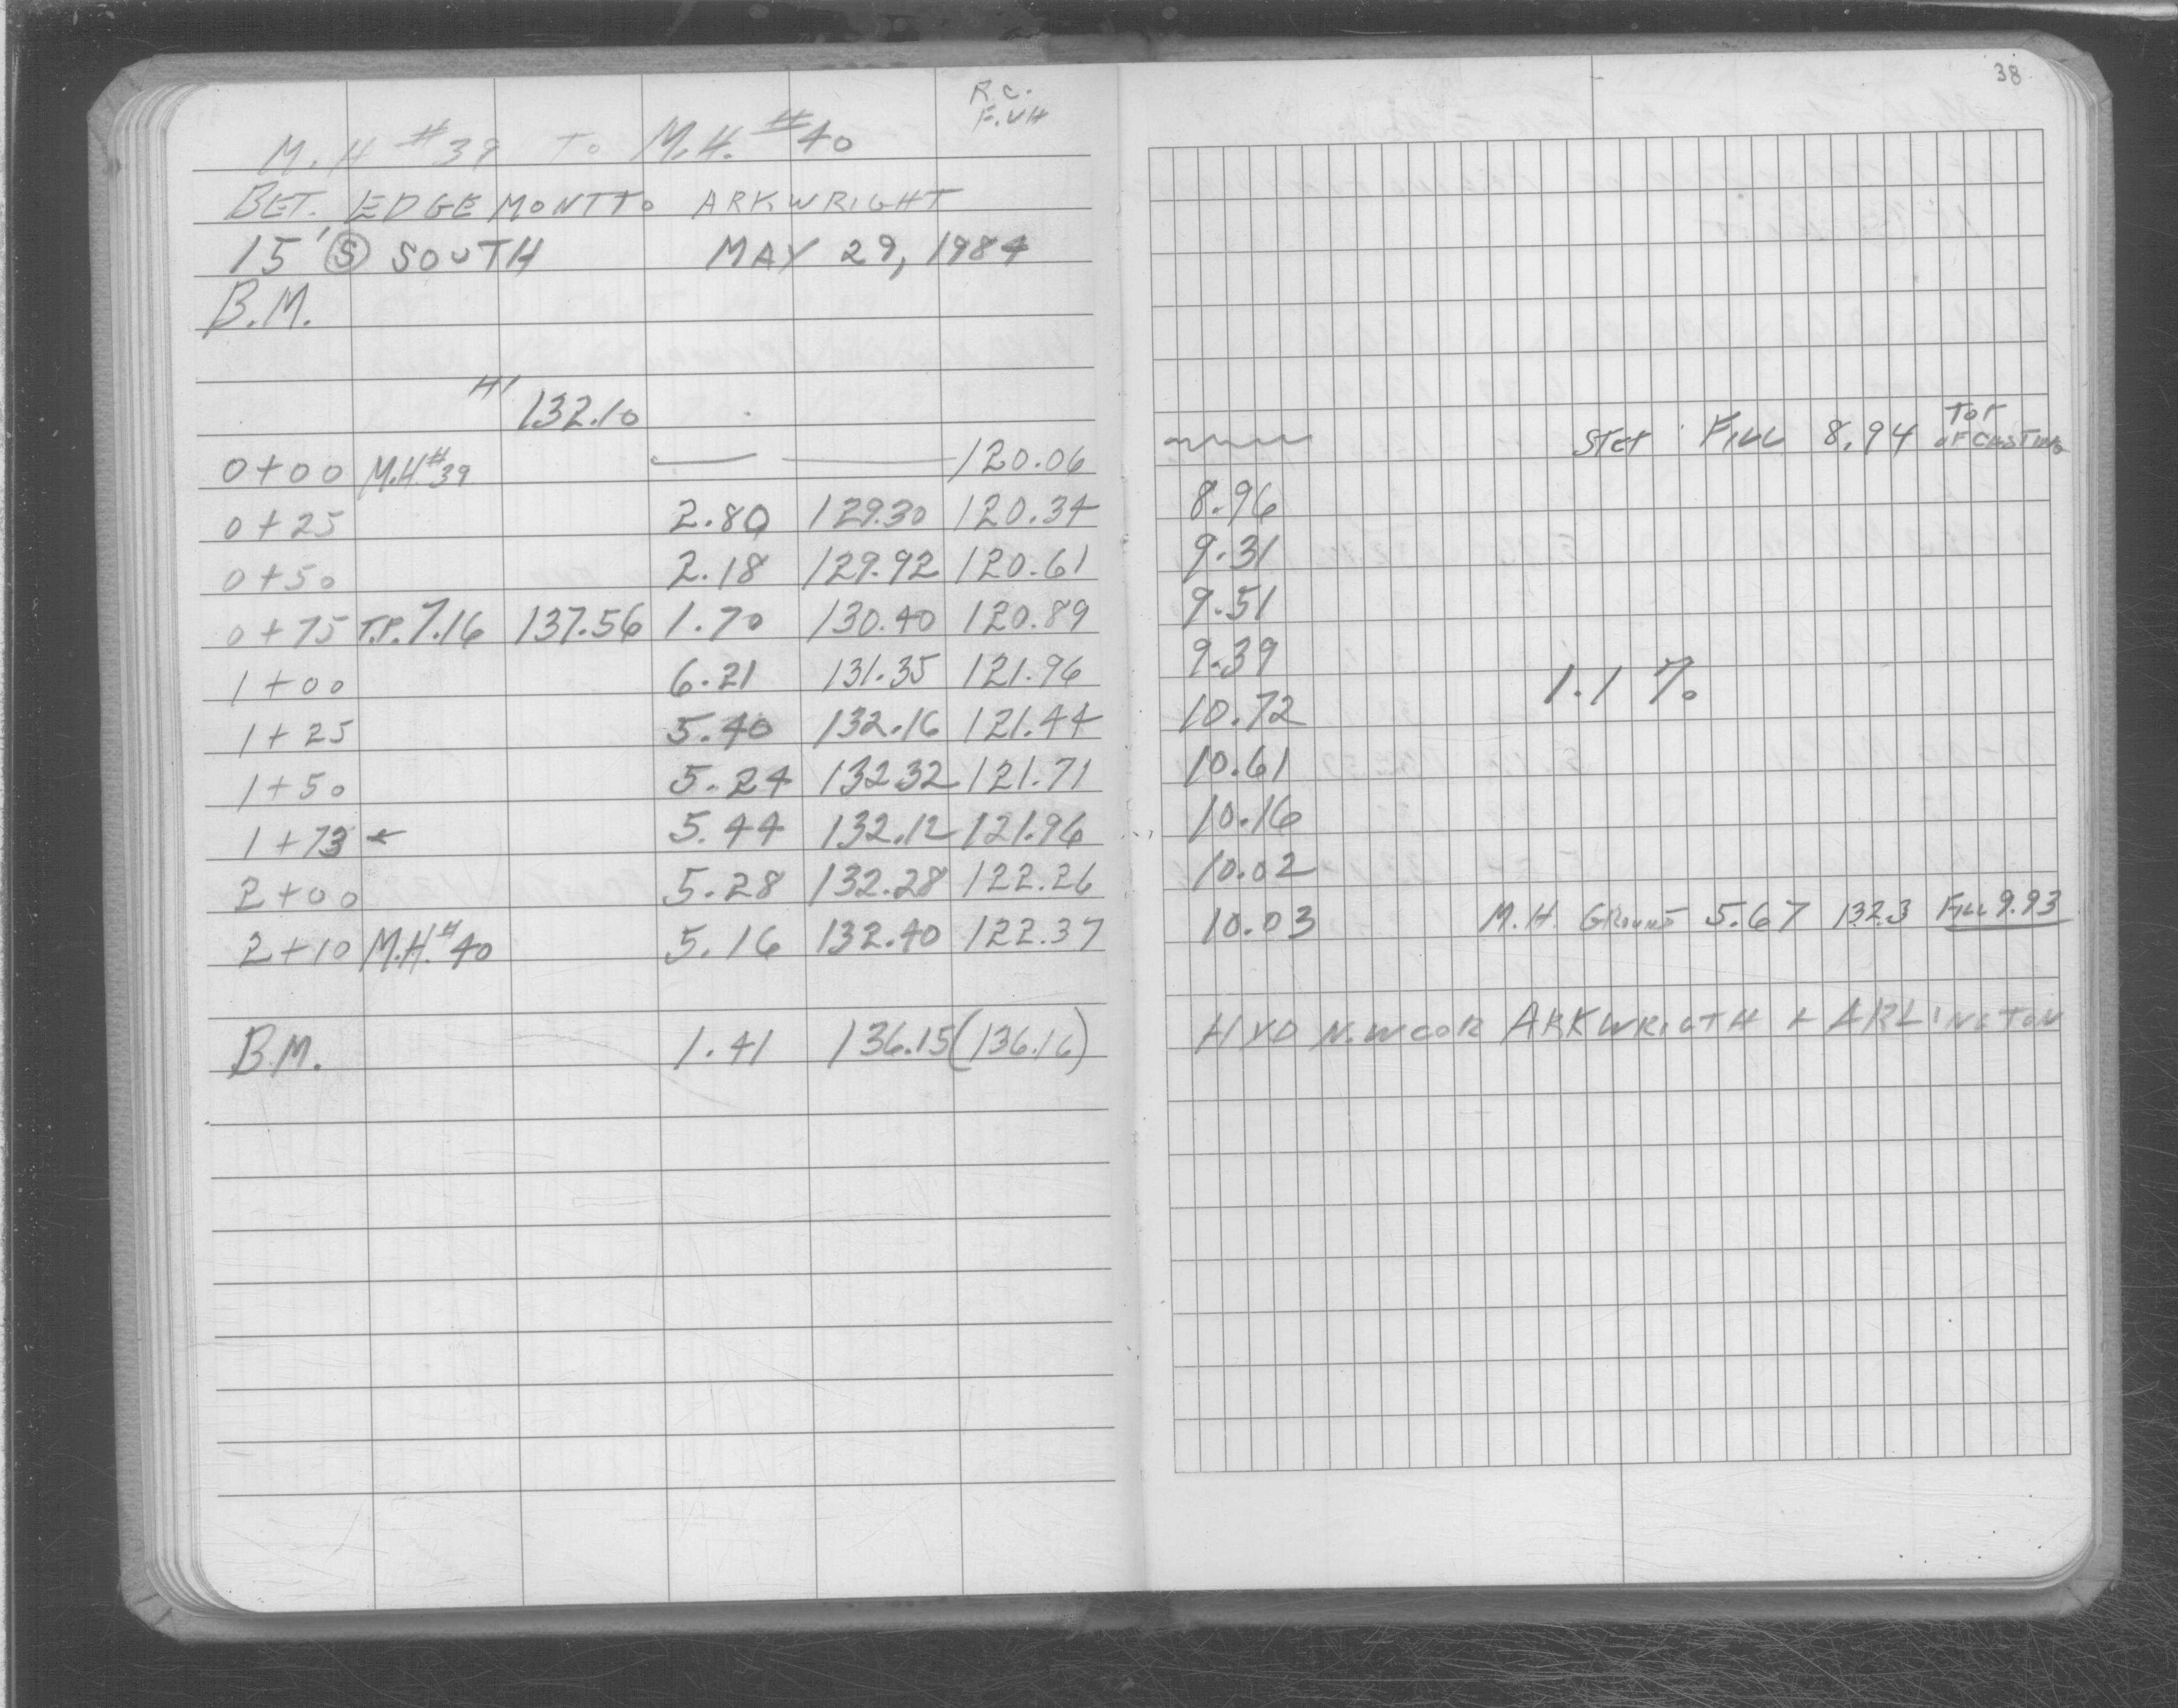 R.C.
F.VH
M.H #39 TO M.H. #40
BET. EDGEMONT TO ARKWRIGHT
15' Ⓢ SOUTH MAY 29, 1984
B.M.
HI 132.10
0+00 M.H#39 — — 120.06
0+25 2.80 129.30 120.34
0+50 2.18 129.92 120.61
0+75 T.P. 7.16 137.56 1.70 130.40 120.89
1+00 6.21 131.35 121.96
1+25 5.40 132.16 121.44
1+50 5.24 132 32 121.71
1+73 ← 5.44 132.12 121.96
2+00 5.28 132.28 122.26
2+10 M.H.#40 5.16 132.40 122.37
B.M. 1.41 136.15 (136.16)
38
FILL 8.94 TOP OF CASTING
8.96
9.31
9.51
9.39
1.1 %
10.72
10.61
10.16
10.02
10.03 M.H. GROUND 5.67 132.3 FILL 9.93
HYD N.W COR ARKWRIGTH + ARLINGTON